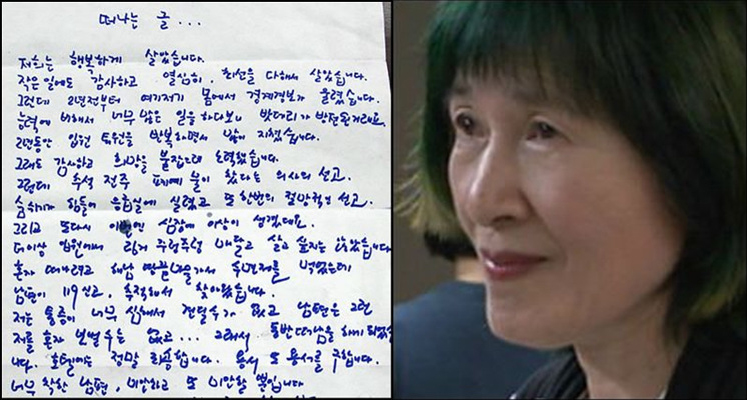 떠나는 글...
저희는 행복하게 살았습니다.
작은일에도 감사하고 열심히, 최선을 다해서 살았습니다.
그런데 2년전부터 여기저기 몸에서 경계경보가 울렸습니다.
능력에 비해서 너무 많은 일을 하다보니 밧더리가 방전된거래요.
2년동안 입원 퇴원을 반복하면서 많이 지쳤습니다.
그래도 감사하고 희망을 붙잡으려 노력했습니다.
그런데 추석 전주 폐에 물이 찼다는 의사의 선고.
숨쉬기가 힘들어 응급실에 실렸고 또 한번의 절망적인 선고.
그리고 또다시 이번엔 심장에 이상이 생겼데요.
더이상 입원에서 링거 주렁주렁 매달고 살고 싶지는 않았습니다
혼자 떠나려고 해남 땅끝마을가서 수면제를 먹었는데
남편이 119신고, 추적해서 찾아왔습니다.
저는 통증이 너무 심해서 견딜수가 없고 남편은 그런
저를 혼자 보낼수는 없고... 그래서 동반떠남을 하게 되었습
니다. 호텔에는 정말 죄송합니다. 용서 또 용서를 구합니다.
너무 착한 남편, 미안하고 또 미안할 뿐입니다